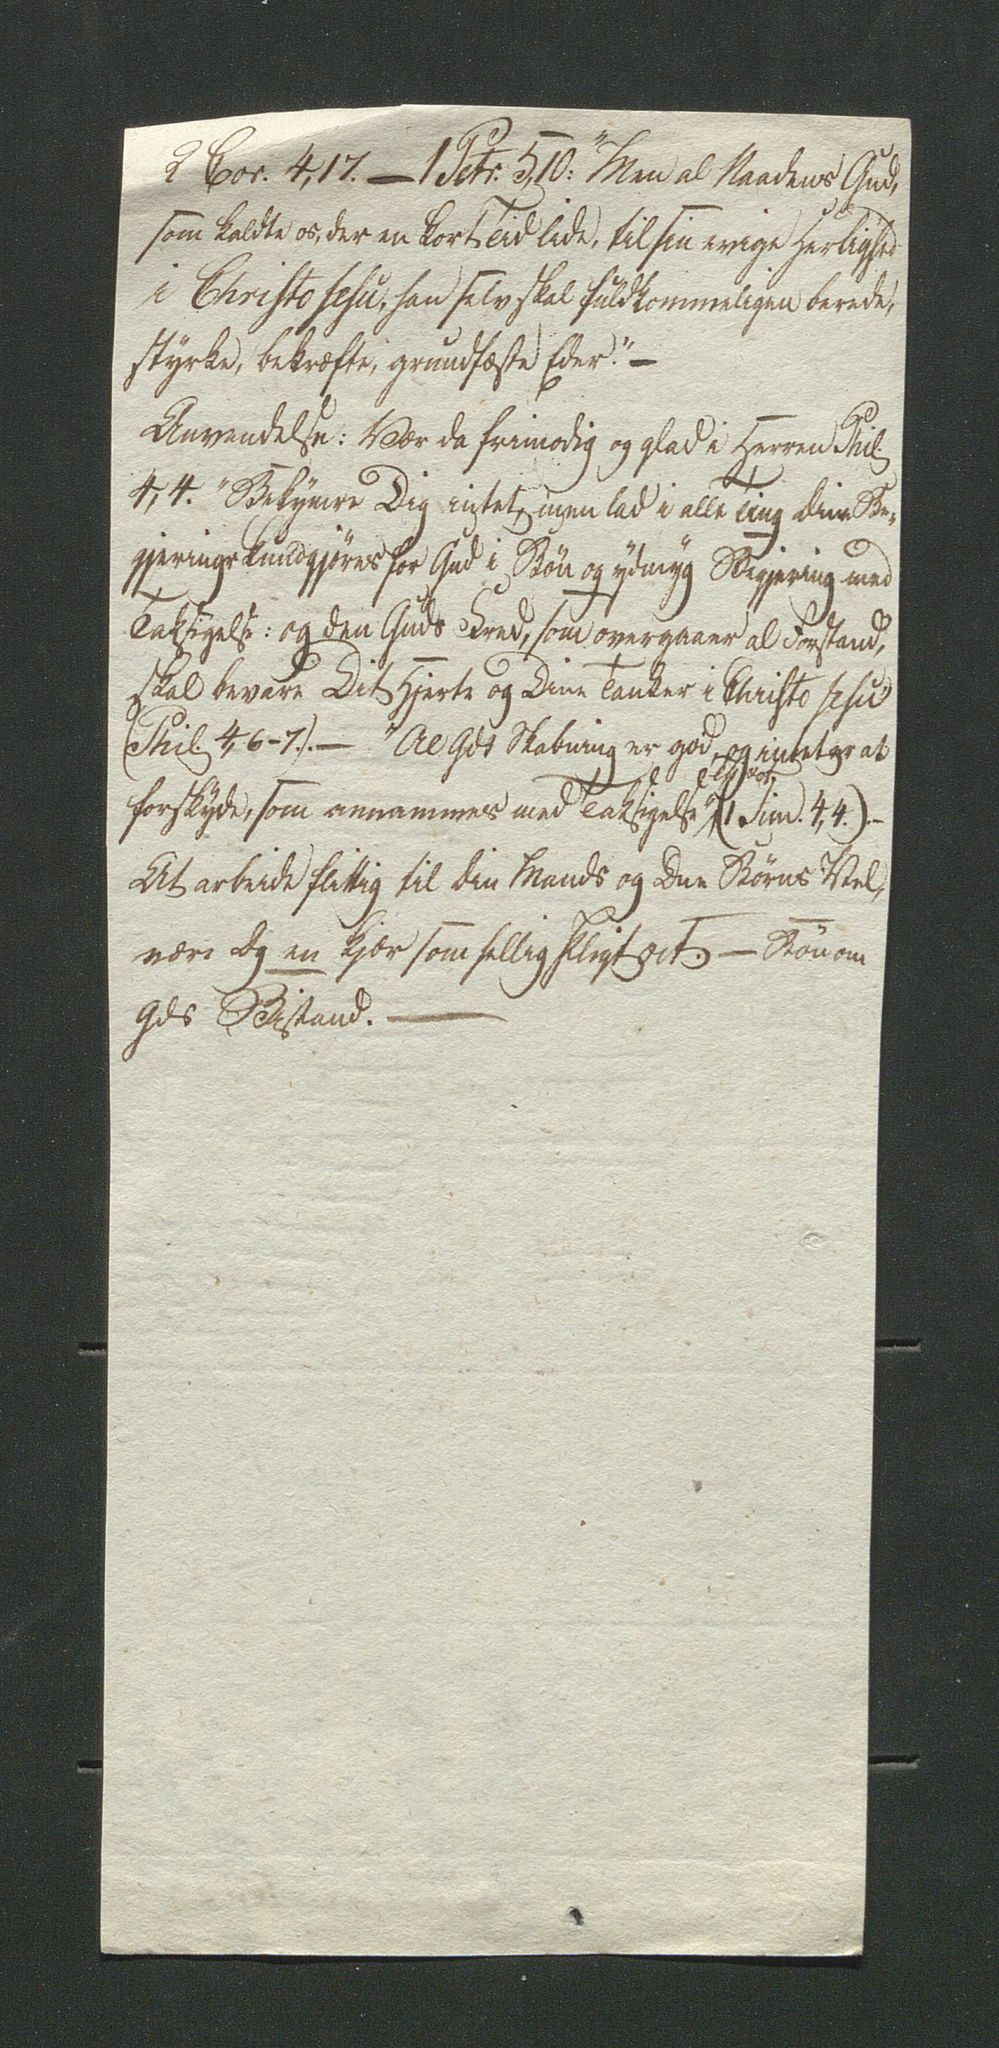 2 Cor. 4,17. — 1 Petr. 5,10: "Men al Naadens Gud,
som kaldte os, der en kort Tid lide, til sin evige Herlighed
i Christo Jesu, han selv skal fuldkommeligen berede,
styrke, bekræfte, grundfæste Eder." —
Anvendelse: Vær da frimodig og glad i Herren Phil.
4,4. "Bekymre Dig intet, men lad i alle Ting dine Be-
gjeringer kundgjøres for Gud i Bøn og ydmyg Begjering med
Taksigelse: og den Guds Fred, som overgaaer al Forstand,
skal bevare Dit Hjerte og Dine Tanker i Christo Jesu"
(Phil. 4,6-7.). — "Al Gds Skabning er god, og intet er at
forskyde, som annammes med Taksigelse" (1 Tim. 4,4.). —
At arbeide flittig til din Mands og Dine Børns Vel,
være Dig en kjær som hellig Pligt — Bøn om
Gds Bistand. —